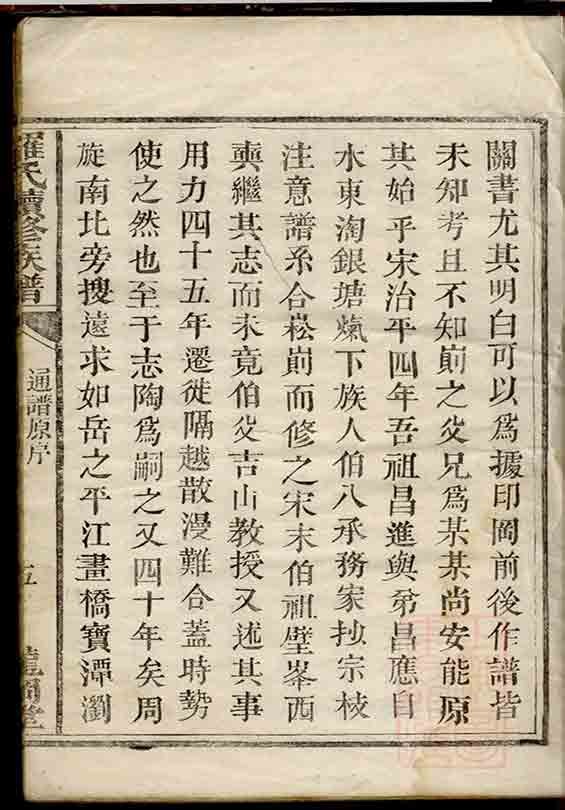 關書尤其明白可以爲據印岡前後作譜皆
未知考且不知崱之父兄爲某某尚安能原
其始乎宋治平四年吾祖昌進與弟昌應自
水東淘銀塘𤍠下族人伯八承務家抄宗枝
注意譜系合崧崱而修之宋末伯祖壁峯西
輿繼其志而未竟伯父吉山教授又述其事
用力四十五年遷徙隔越散漫難合蓋時勢
使之然也至于志陶爲嗣之又四十年矣周
旋南北旁搜遠求如岳之平江畫橋寶潭瀏
羅氏續修族譜
通譜原序
五